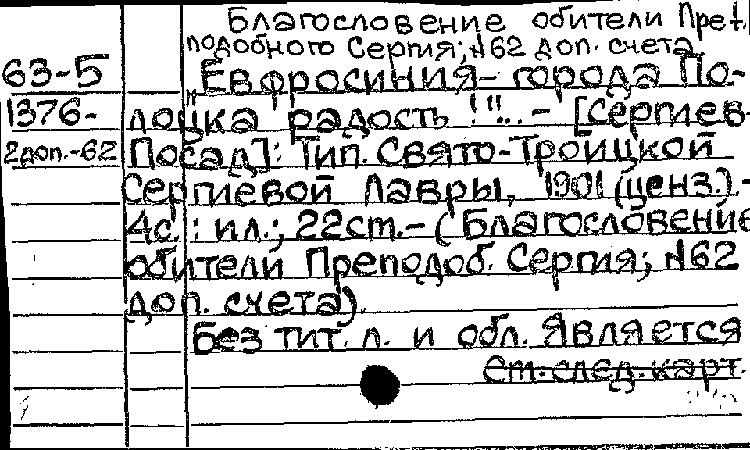 Благословение обители Преп.
подобного Сергия; №62 доп. счета.
63-5 "Евфросиния - города По-
1376- лоцка радость!"... - [Сергиев-
2доп.-62 Посад]: Тип. Свято-Троицкой
Сергиевой Лавры, 1901 (ценз.).-
4с.: ил.; 22ст.- (Благословение
обители Преподоб. Сергия; №62
доп. счета).
Без тит. л. и обл. Является
ст. след. карт.